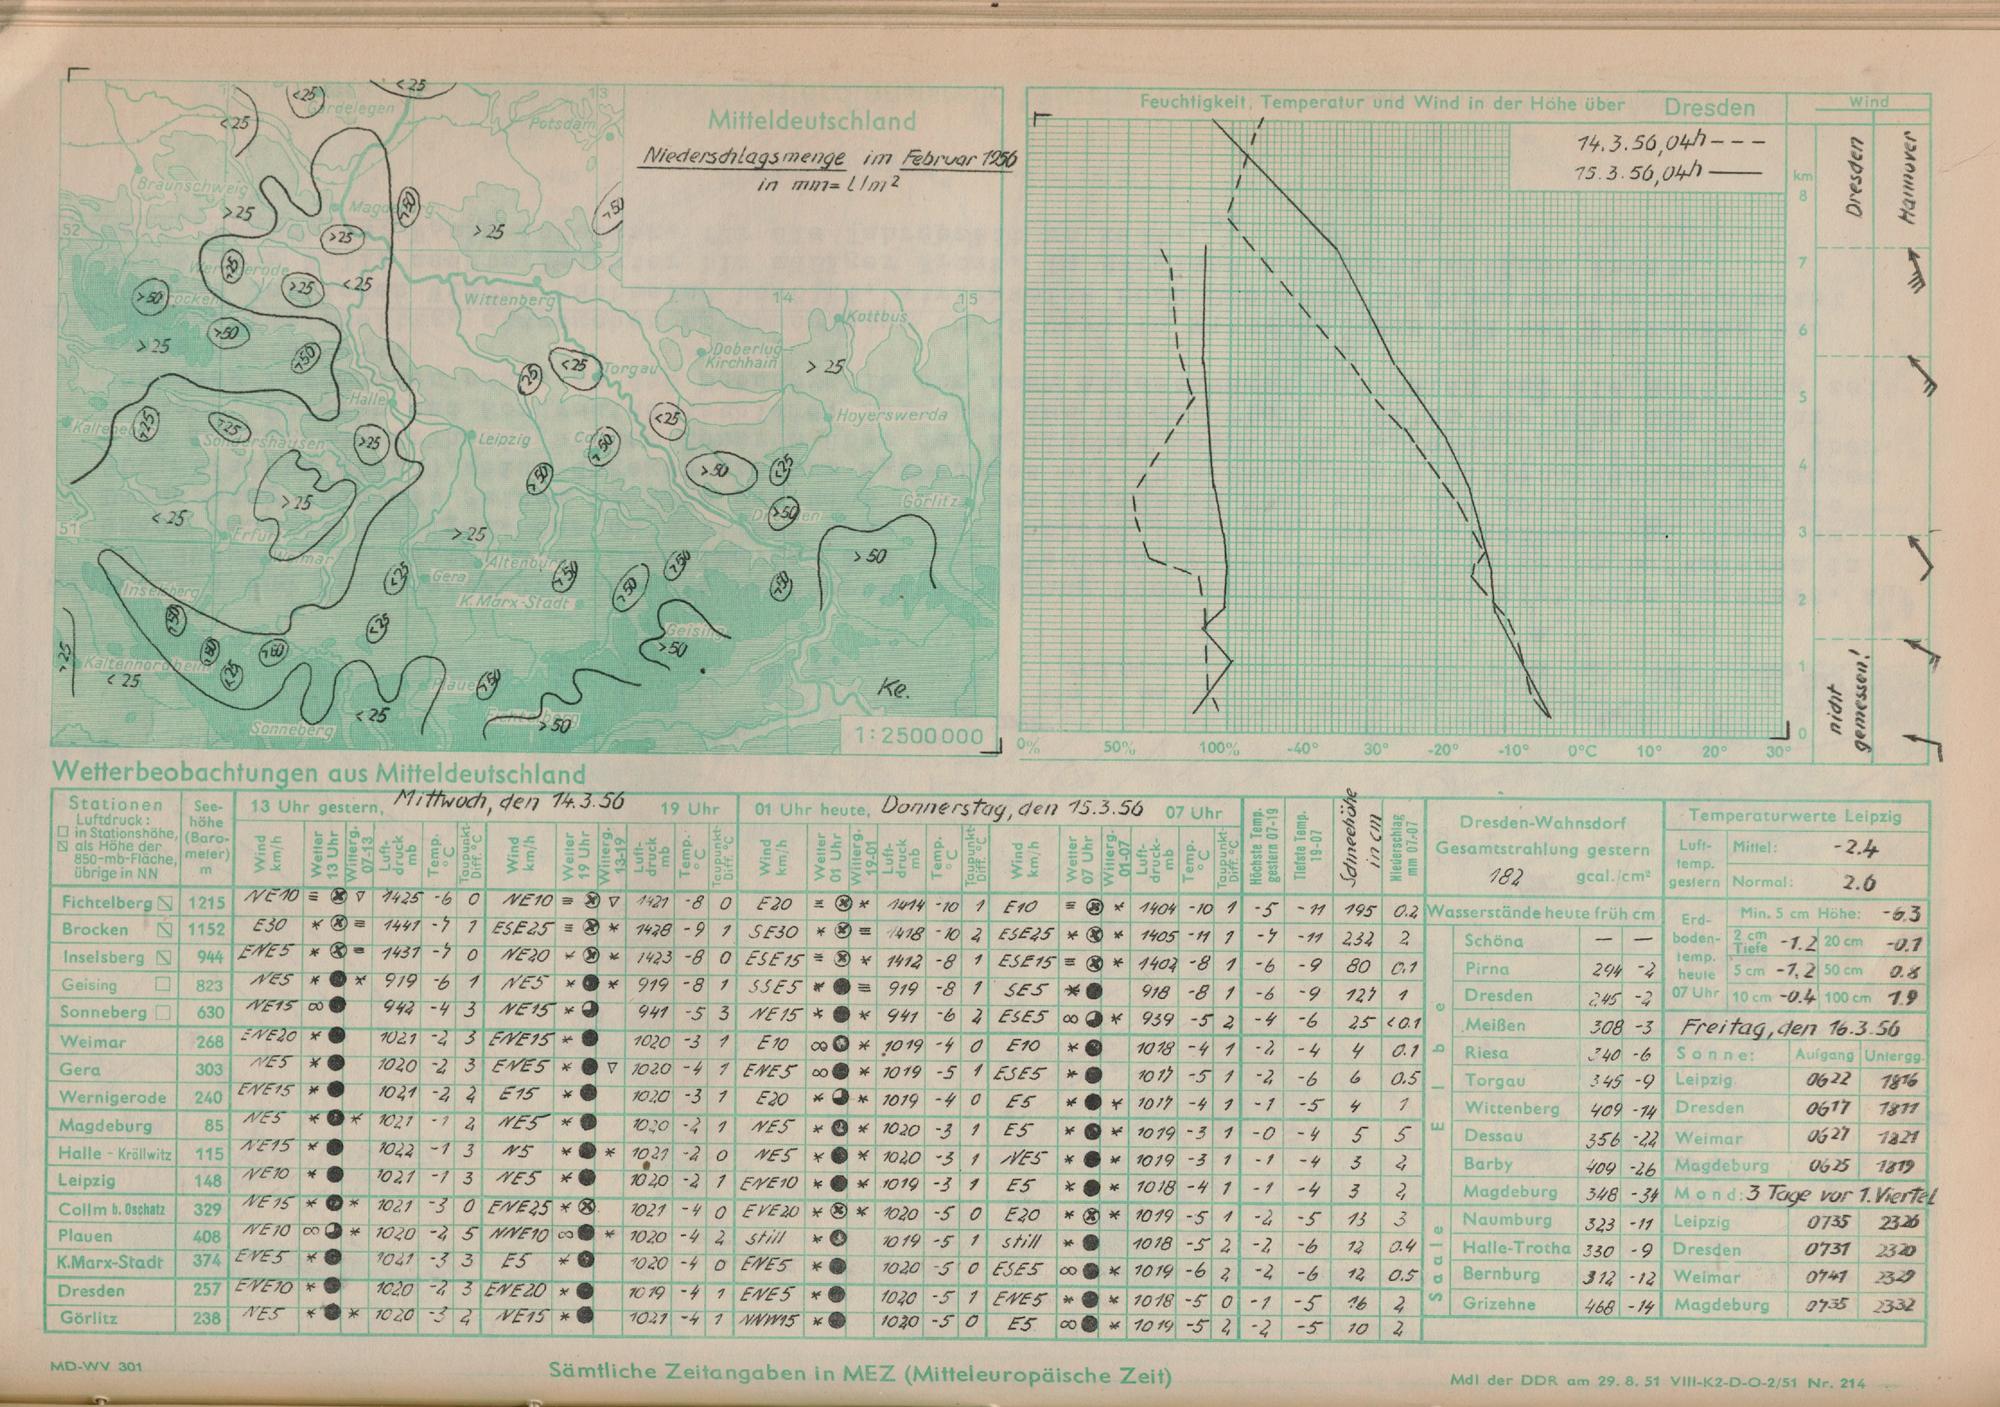 Mitteldeutschland
Niederschlagsmenge im Februar 1956
in mm = l/m²
Gardelegen
13
Potsdam
Braunschweig
Magdeburg
52
Wernigerode
Brocken
Wittenberg
14
15
Kottbus
Doberlug-
Kirchhain
Torgau
Halle
Hoyerswerda
Sondershausen
Leipzig
Görlitz
Dresden
51
Erfurt
Weimar
Altenburg
Gera
K.Marx-Stadt
Inselsberg
Geising
Kaltennordheim
Plauen
Sonneberg
Ke.
1:2500000
Feuchtigkeit, Temperatur und Wind in der Höhe über Dresden
Wind
14.3.56, 04h - - -
15.3.56, 04h ——
Dresden
Hannover
km
8
7
6
5
4
3
2
1
0
nicht gemessen!
0% 50% 100% -40° 30° -20° -10° 0°C 10° 20° 30°
Wetterbeobachtungen aus Mitteldeutschland
Stationen
Luftdruck:
in Stationshöhe,
als Höhe der
850-mb-Fläche,
übrige in NN
See-
höhe
(Baro-
meter)
m
13 Uhr gestern, Mittwoch, den 14.3.56 19 Uhr
01 Uhr heute, Donnerstag, den 15.3.56 07 Uhr
Wind km/h Wetter 13 Uhr Witterg. 07-13 Luft-druck mb Temp. °C Taupunkt-Diff. °C
Wind km/h Wetter 19 Uhr Witterg. 13-19 Luft-druck mb Temp. °C Taupunkt-Diff. °C
Wind km/h Wetter 01 Uhr Witterg. 19-01 Luft-druck mb Temp. °C Taupunkt-Diff. °C
Wind km/h Wetter 07 Uhr Witterg. 01-07 Luft-druck mb Temp. °C Taupunkt-Diff. °C
Höchste Temp. gestern 07-19
Tiefste Temp. 19-07
Schneehöhe in cm
Niederschlag mm 07-07
Fichtelberg 1215 NE10 1425 -6 0 NE10 1421 -8 0 E20 1414 -10 1 E10 1404 -10 1 -5 -11 195 0.2
Brocken 1152 E30 1441 -7 1 ESE25 1428 -9 1 SE30 1418 -10 2 ESE25 1405 -11 1 -7 -11 232 2
Inselsberg 944 ENE5 1431 -7 0 NE20 1423 -8 0 ESE15 1412 -8 1 ESE15 1402 -8 1 -6 -9 80 0.1
Geising 823 NE5 919 -6 1 NE5 919 -8 1 SSE5 919 -8 1 SE5 918 -8 1 -6 -9 127 1
Sonneberg 630 NE15 942 -4 3 NE15 941 -5 3 NE15 941 -6 2 ESE5 939 -5 2 -4 -6 25 <0.1
Weimar 268 ENE20 1021 -2 3 ENE15 1020 -3 1 E10 1019 -4 0 E10 1018 -4 1 -2 -4 4 0.1
Gera 303 NE5 1020 -2 3 ENE5 1020 -4 1 ENE5 1019 -5 1 ESE5 1017 -5 1 -2 -6 6 0.5
Wernigerode 240 ENE15 1021 -2 2 E15 1020 -3 1 E20 1019 -4 0 E5 1017 -4 1 -1 -5 4 1
Magdeburg 85 NE5 1021 -1 2 NE5 1020 -2 1 NE5 1020 -3 1 E5 1019 -3 1 -0 -4 5 5
Halle - Kröllwitz 115 NE15 1022 -1 3 N5 1021 -2 0 NE5 1020 -3 1 NE5 1019 -3 1 -1 -4 3 2
Leipzig 148 NE10 1021 -1 3 NE5 1020 -2 1 ENE10 1019 -3 1 E5 1018 -4 1 -1 -4 3 2
Collm b. Oschatz 329 NE15 1021 -3 0 ENE25 1021 -4 0 ENE20 1020 -5 0 E20 1019 -5 1 -2 -5 13 3
Plauen 408 NE10 1020 -2 5 NNE10 1020 -4 2 still 1019 -5 1 still 1018 -5 2 -2 -6 12 0.4
K.Marx-Stadt 374 ENE5 1021 -3 3 E5 1020 -4 0 ENE5 1020 -5 0 ESE5 1019 -6 2 -2 -6 12 0.5
Dresden 257 ENE10 1020 -2 3 ENE20 1019 -4 1 ENE5 1020 -5 1 ENE5 1018 -5 0 -1 -5 16 2
Görlitz 238 NE5 1020 -3 2 NE15 1021 -4 1 NNW15 1020 -5 0 E5 1019 -5 2 -2 -5 10 2
Dresden-Wahnsdorf
Gesamtstrahlung gestern
182 gcal./cm²
Wasserstände heute früh cm
Elbe
Schöna — —
Pirna 294 -2
Dresden 245 -2
Meißen 308 -3
Riesa 340 -6
Torgau 345 -9
Wittenberg 409 -14
Dessau 356 -22
Barby 409 -26
Magdeburg 348 -34
Saale
Naumburg 323 -11
Halle-Trotha 330 -9
Bernburg 312 -12
Grizehne 468 -14
Temperaturwerte Leipzig
Luft-
temp.
gestern
Mittel: -2.4
Normal: 2.6
Erd-
boden-
temp.
heute
07 Uhr
Min. 5 cm Höhe: -6.3
2 cm Tiefe -1.2 20 cm -0.1
5 cm -1.2 50 cm 0.8
10 cm -0.4 100 cm 1.9
Freitag, den 16.3.56
Sonne: Aufgang Untergg.
Leipzig 0622 1816
Dresden 0617 1811
Weimar 0627 1821
Magdeburg 0625 1819
Mond: 3 Tage vor 1. Viertel
Leipzig 0735 2326
Dresden 0731 2320
Weimar 0741 2329
Magdeburg 0735 2332
MD-WV 301
Sämtliche Zeitangaben in MEZ (Mitteleuropäische Zeit)
MdI der DDR am 29. 8. 51 VIII-K2-D-O-2/51 Nr. 214